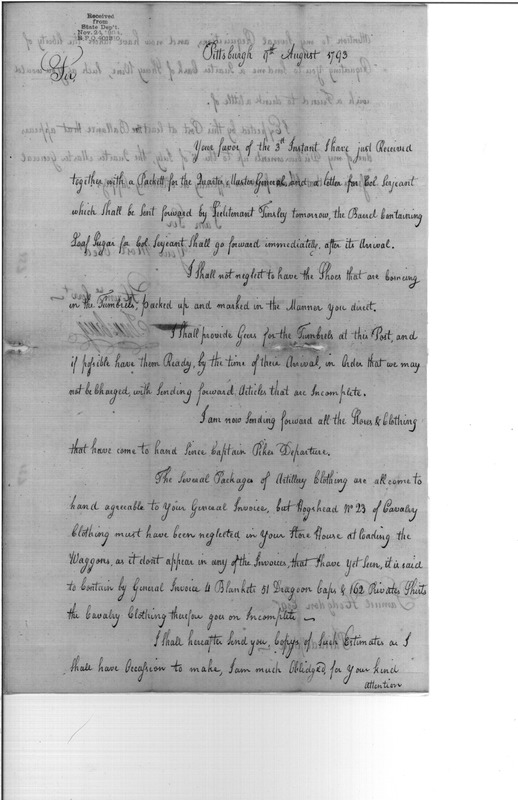 Received
from
State Dep't.
Nov. 23, 1904.
Pittsburgh 9th August 1793
Sir,
Your favor of the 3d Instant I have just Received
together with a Packett for the Quarter Master General, and a letter for Col. Serjeant
which Shall be Sent forward by Lieutenant Tinsley tomorrow, the Barrel Containing
Loaf Sugar for Col. Serjeant Shall go forward immediately, after its Arrival.
I Shall not neglect to have the Shoes that are comeing
in the Tumbrels, packed up and marked in the Manner you direct.
I Shall provide Gears for the Tumbrels at this Post, and
if possible have them Ready, by the time of their Arrival, in Order that we may
not be Charged, with Sending forward, Articles that are Incomplete.
I am now Sending forward all the Stores & Clothing
that have come to hand Since Captain Pikes Departure.
The Several Packages of Artillery Clothing are all come to
hand agreeable to your General Invoice, but Hogshead No 23 of Cavalry
Clothing must have been neglected in your Store House at loading the
Waggons, as it dont appear in any of the Invoices, that I have yet Seen, it is said
to Contain by General Invoice 4 Blankets 51 Dragoon Caps & 162 Privates Shirts
the Cavalry Clothing therefore goes on Incomplete
I Shall hereafter Send you Copys of Such Estimates as I
Shall have Occassion to make, I am much Oblidged, for your kind
attention